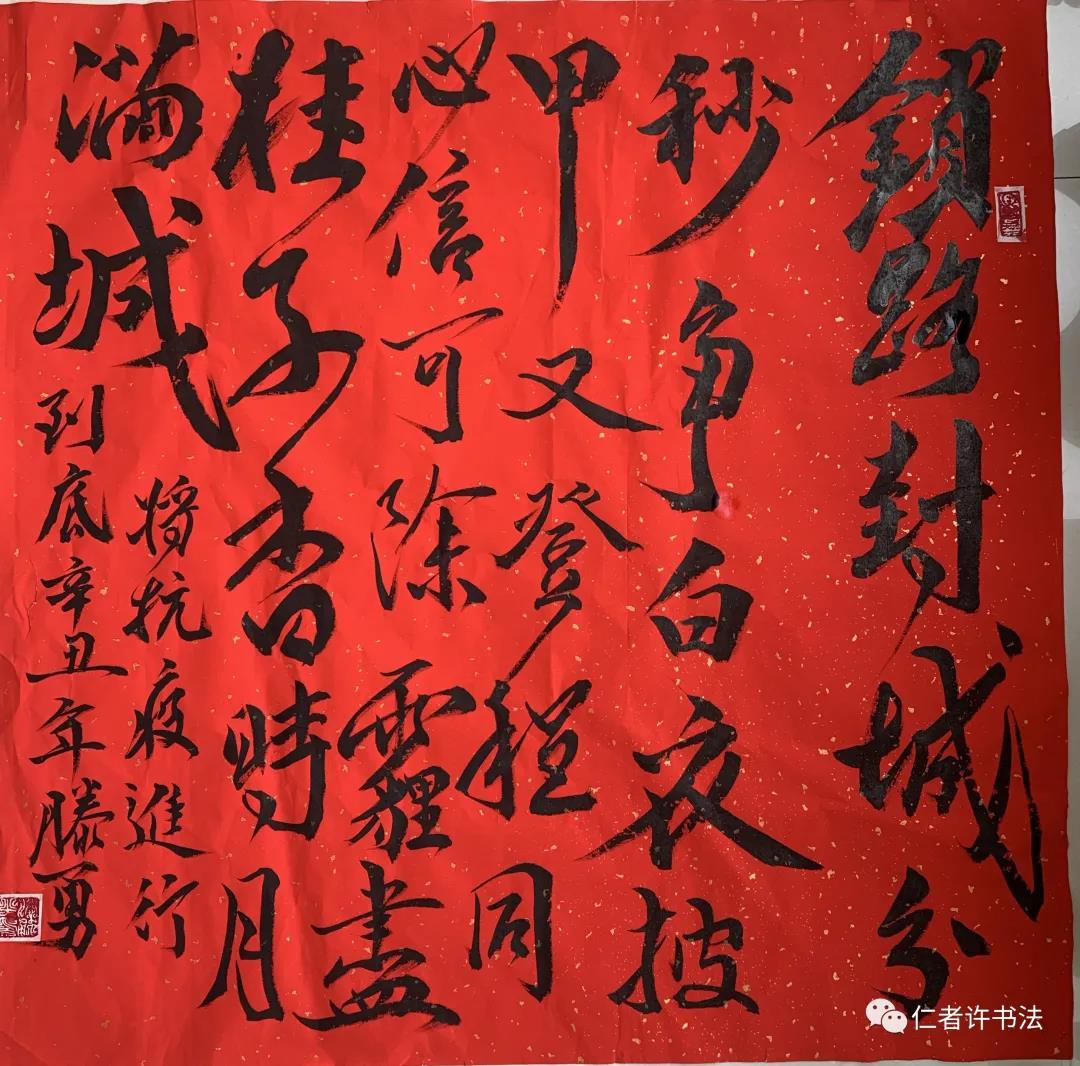 鎖路封城分
秒争白夜披
甲又登程同
心信可除霾盡
桂子香時月
满城
將抗疫進行
到底辛丑年滕勇
仁者许书法